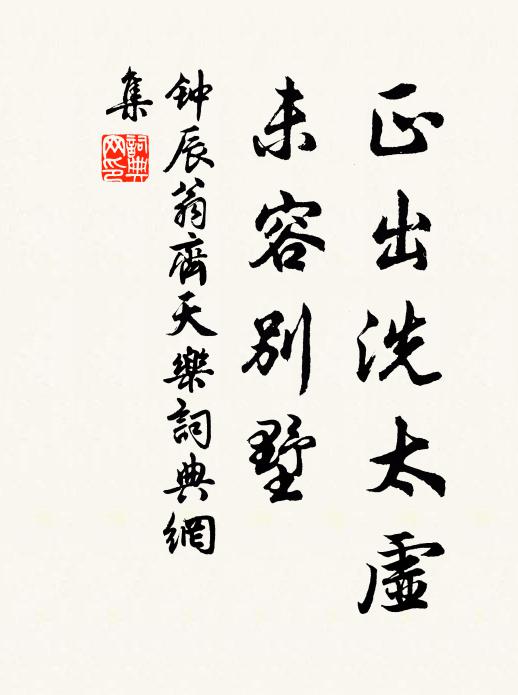 正出洗太虛
未容別墅
钟辰翁齊天樂詞典網
集
詞典網印